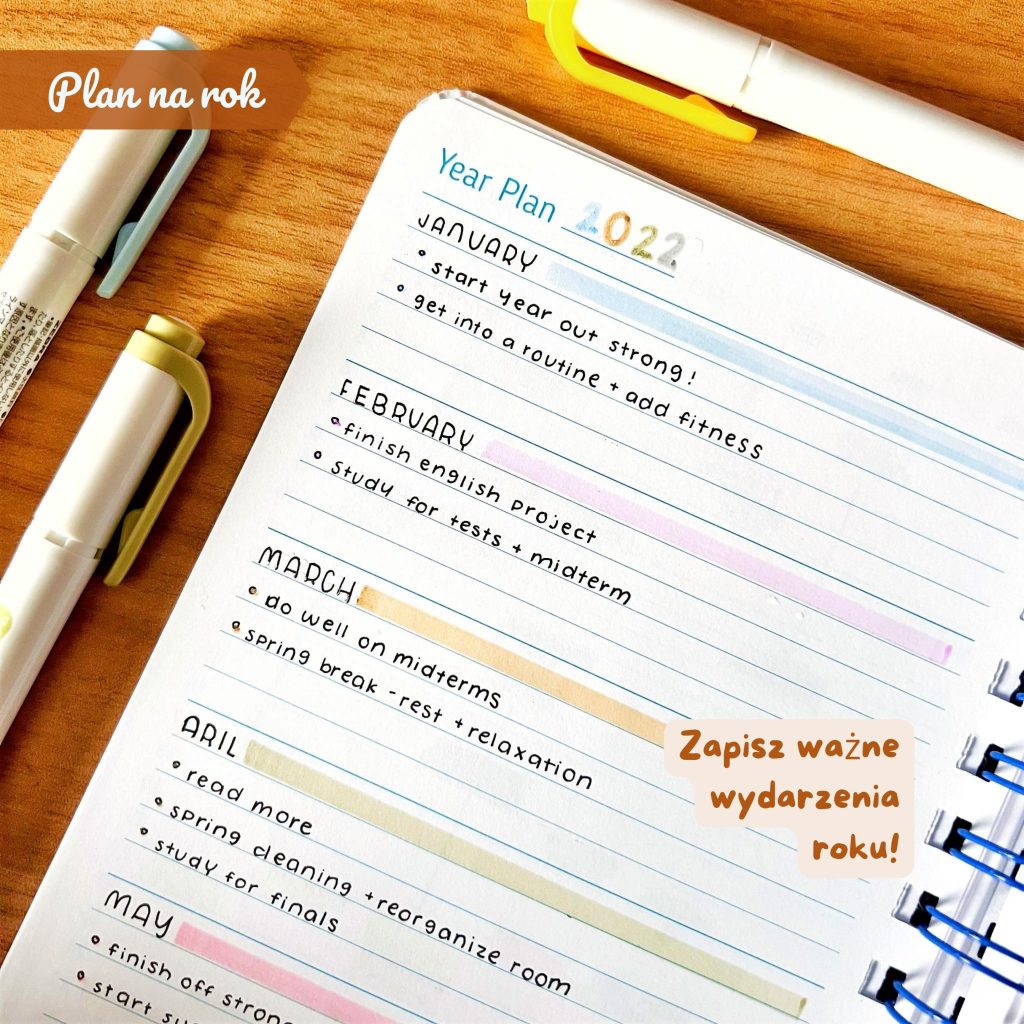 Plan na rok
Year Plan 2022
JANUARY
start year out strong!
get into a routine + add fitness
FEBRUARY
finish english project
study for tests + midterm
MARCH
do well on midterms
spring break - rest + relaxation
ARIL
read more
spring cleaning + reorganize room
study for finals
MAY
finish off stron
start su
Zapisz ważne
wydarzenia
roku!